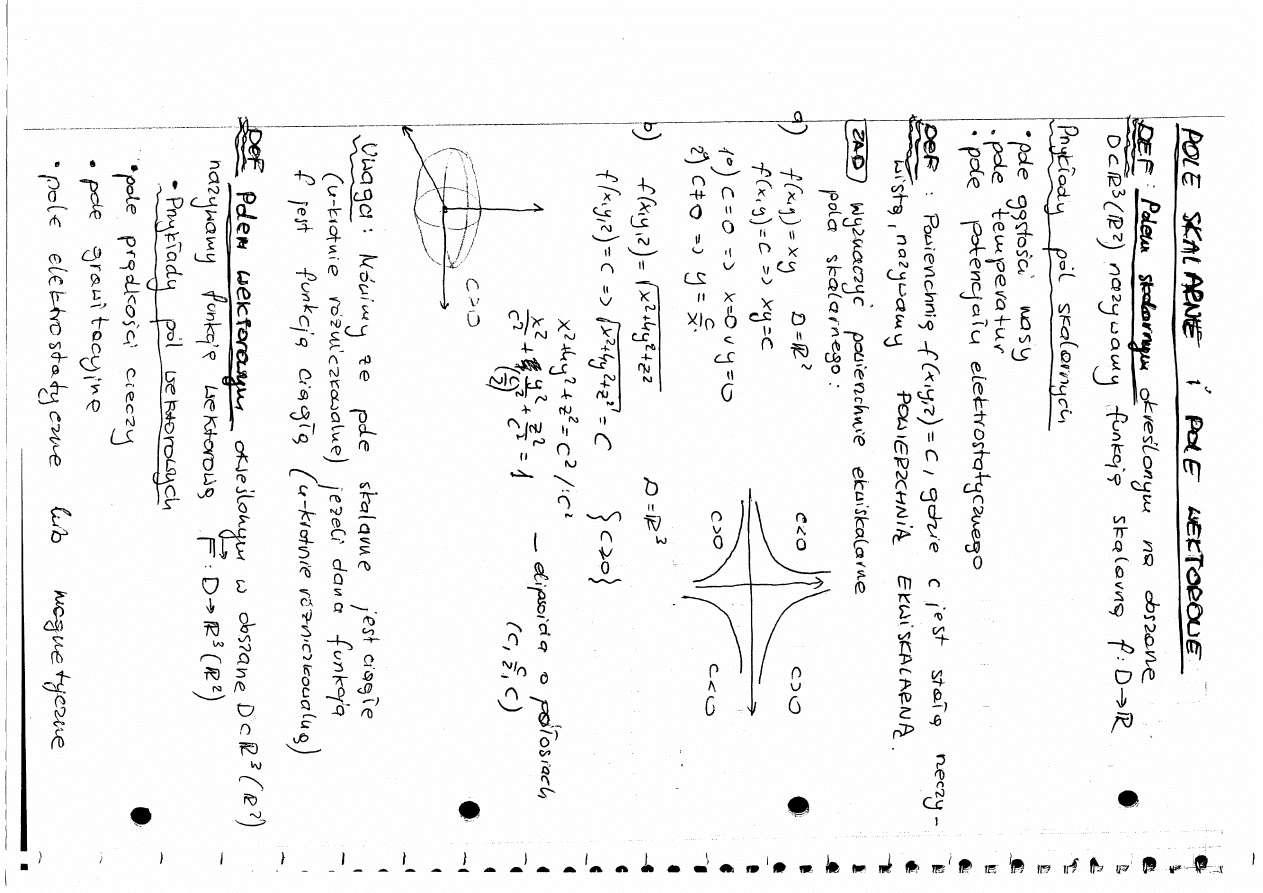 POLE SKALARNE i POLE WEKTOROWE
DEF: Polem skalarnym określonym na obszarze
D⊂ℝ³(ℝ²) nazywamy funkcję skalarną f: D→ℝ
Przykłady pól skalarnych
• pole gęstości masy
• pole temperatur
• pole potencjału elektrostatycznego
DEF: Powierzchnią f(x,y,z)=c, gdzie c jest stałą rzeczy-
wistą, nazywamy POWIERZCHNIĄ EKWISKALARNĄ.
ZAD wyznaczyć powierzchnie ekwiskalarne
pola skalarnego:
a) f(x,y)=xy D=ℝ²
f(x,y)=c => xy=c
1º) c=0 => x=0 ∨ y=0
2º) c≠0 => y=c/x
c<0 c>0
c>0 c<0
b) f(x,y,z)=√(x²+4y²+z²) D=ℝ³
f(x,y,z)=c => √(x²+4y²+z²)=c {c≥0}
x²+4y²+z²=c² /:c²
x²/c² + y²/(c/2)² + z²/c² = 1 – elipsoida o półosiach
(c, c/2, c)
c>0
Uwaga: Mówimy że pole skalarne jest ciągłe
(n-krotnie różniczkowalne) jeżeli dana funkcja
f jest funkcją ciągłą (n-krotnie różniczkowalną)
DEF Polem wektorowym określonym w obszarze D⊂ℝ³(ℝ²)
nazywamy funkcję wektorową F⃗: D→ℝ³(ℝ²)
• Przykłady pól wektorowych
• pole prędkości cieczy
• pole grawitacyjne
• pole elektrostatyczne lub magnetyczne